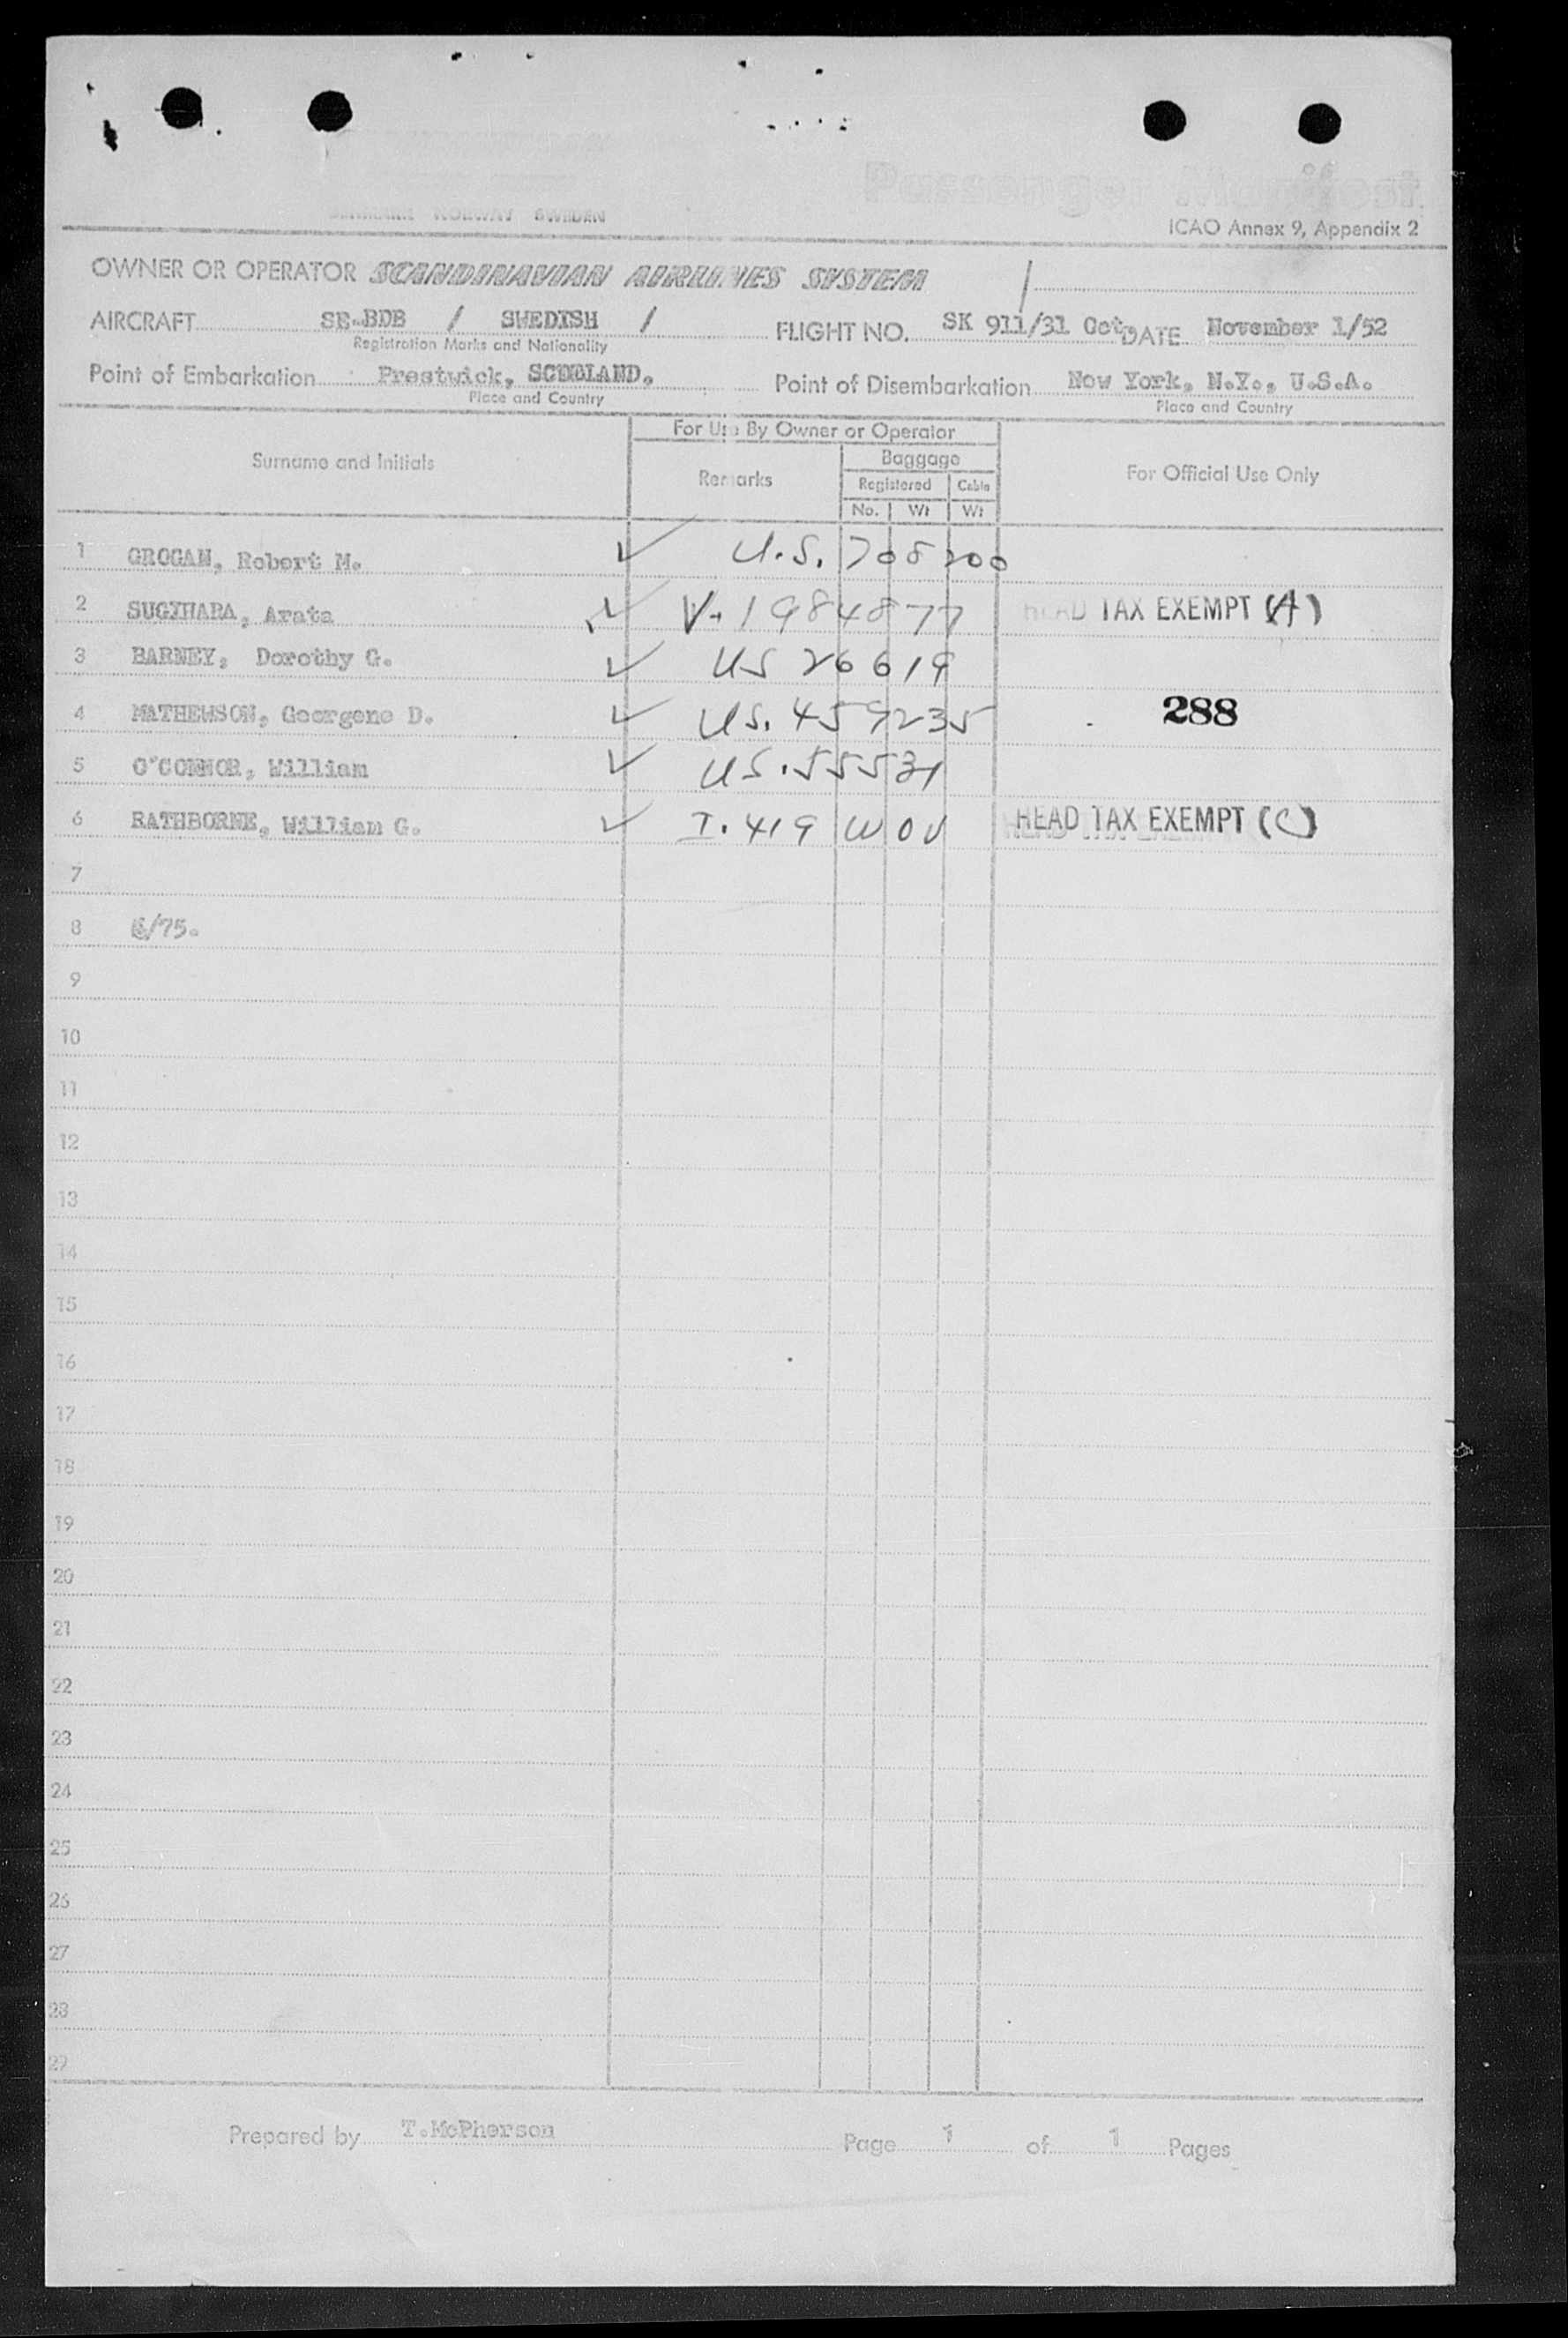 Passenger Manifest
DENMARK NORWAY SWEDEN
ICAO Annex 9, Appendix 2
OWNER OR OPERATOR SCANDINAVIAN AIRLINES SYSTEM /
AIRCRAFT SE-BDB / SWEDISH / FLIGHT NO. SK 911/31 Oct. DATE November 1/52
Registration Marks and Nationality
Point of Embarkation Prestwick, SCOTLAND. Point of Disembarkation New York, N.Y., U.S.A.
Place and Country Place and Country
For Use By Owner or Operator
Surname and Initials Remarks Baggage For Official Use Only
Registered Cabin
No. Wt Wt
1 GROGAN, Robert M. ✓ U.S. 708200
2 SUGIHARA, Arata ✓ V-1984877 HEAD TAX EXEMPT (A)
3 BARNEY, Dorothy G. ✓ US 26619
4 MATHEWSON, Georgene D. ✓ US. 459235 288
5 O'CONNOR, William ✓ US. 55531
6 RATHBORNE, William G. ✓ I. 419 HEAD TAX EXEMPT (C)
7
8 6/75.
9
10
11
12
13
14
15
16
17
18
19
20
21
22
23
24
25
26
27
28
29
Prepared by T.McPherson Page 1 of 1 Pages